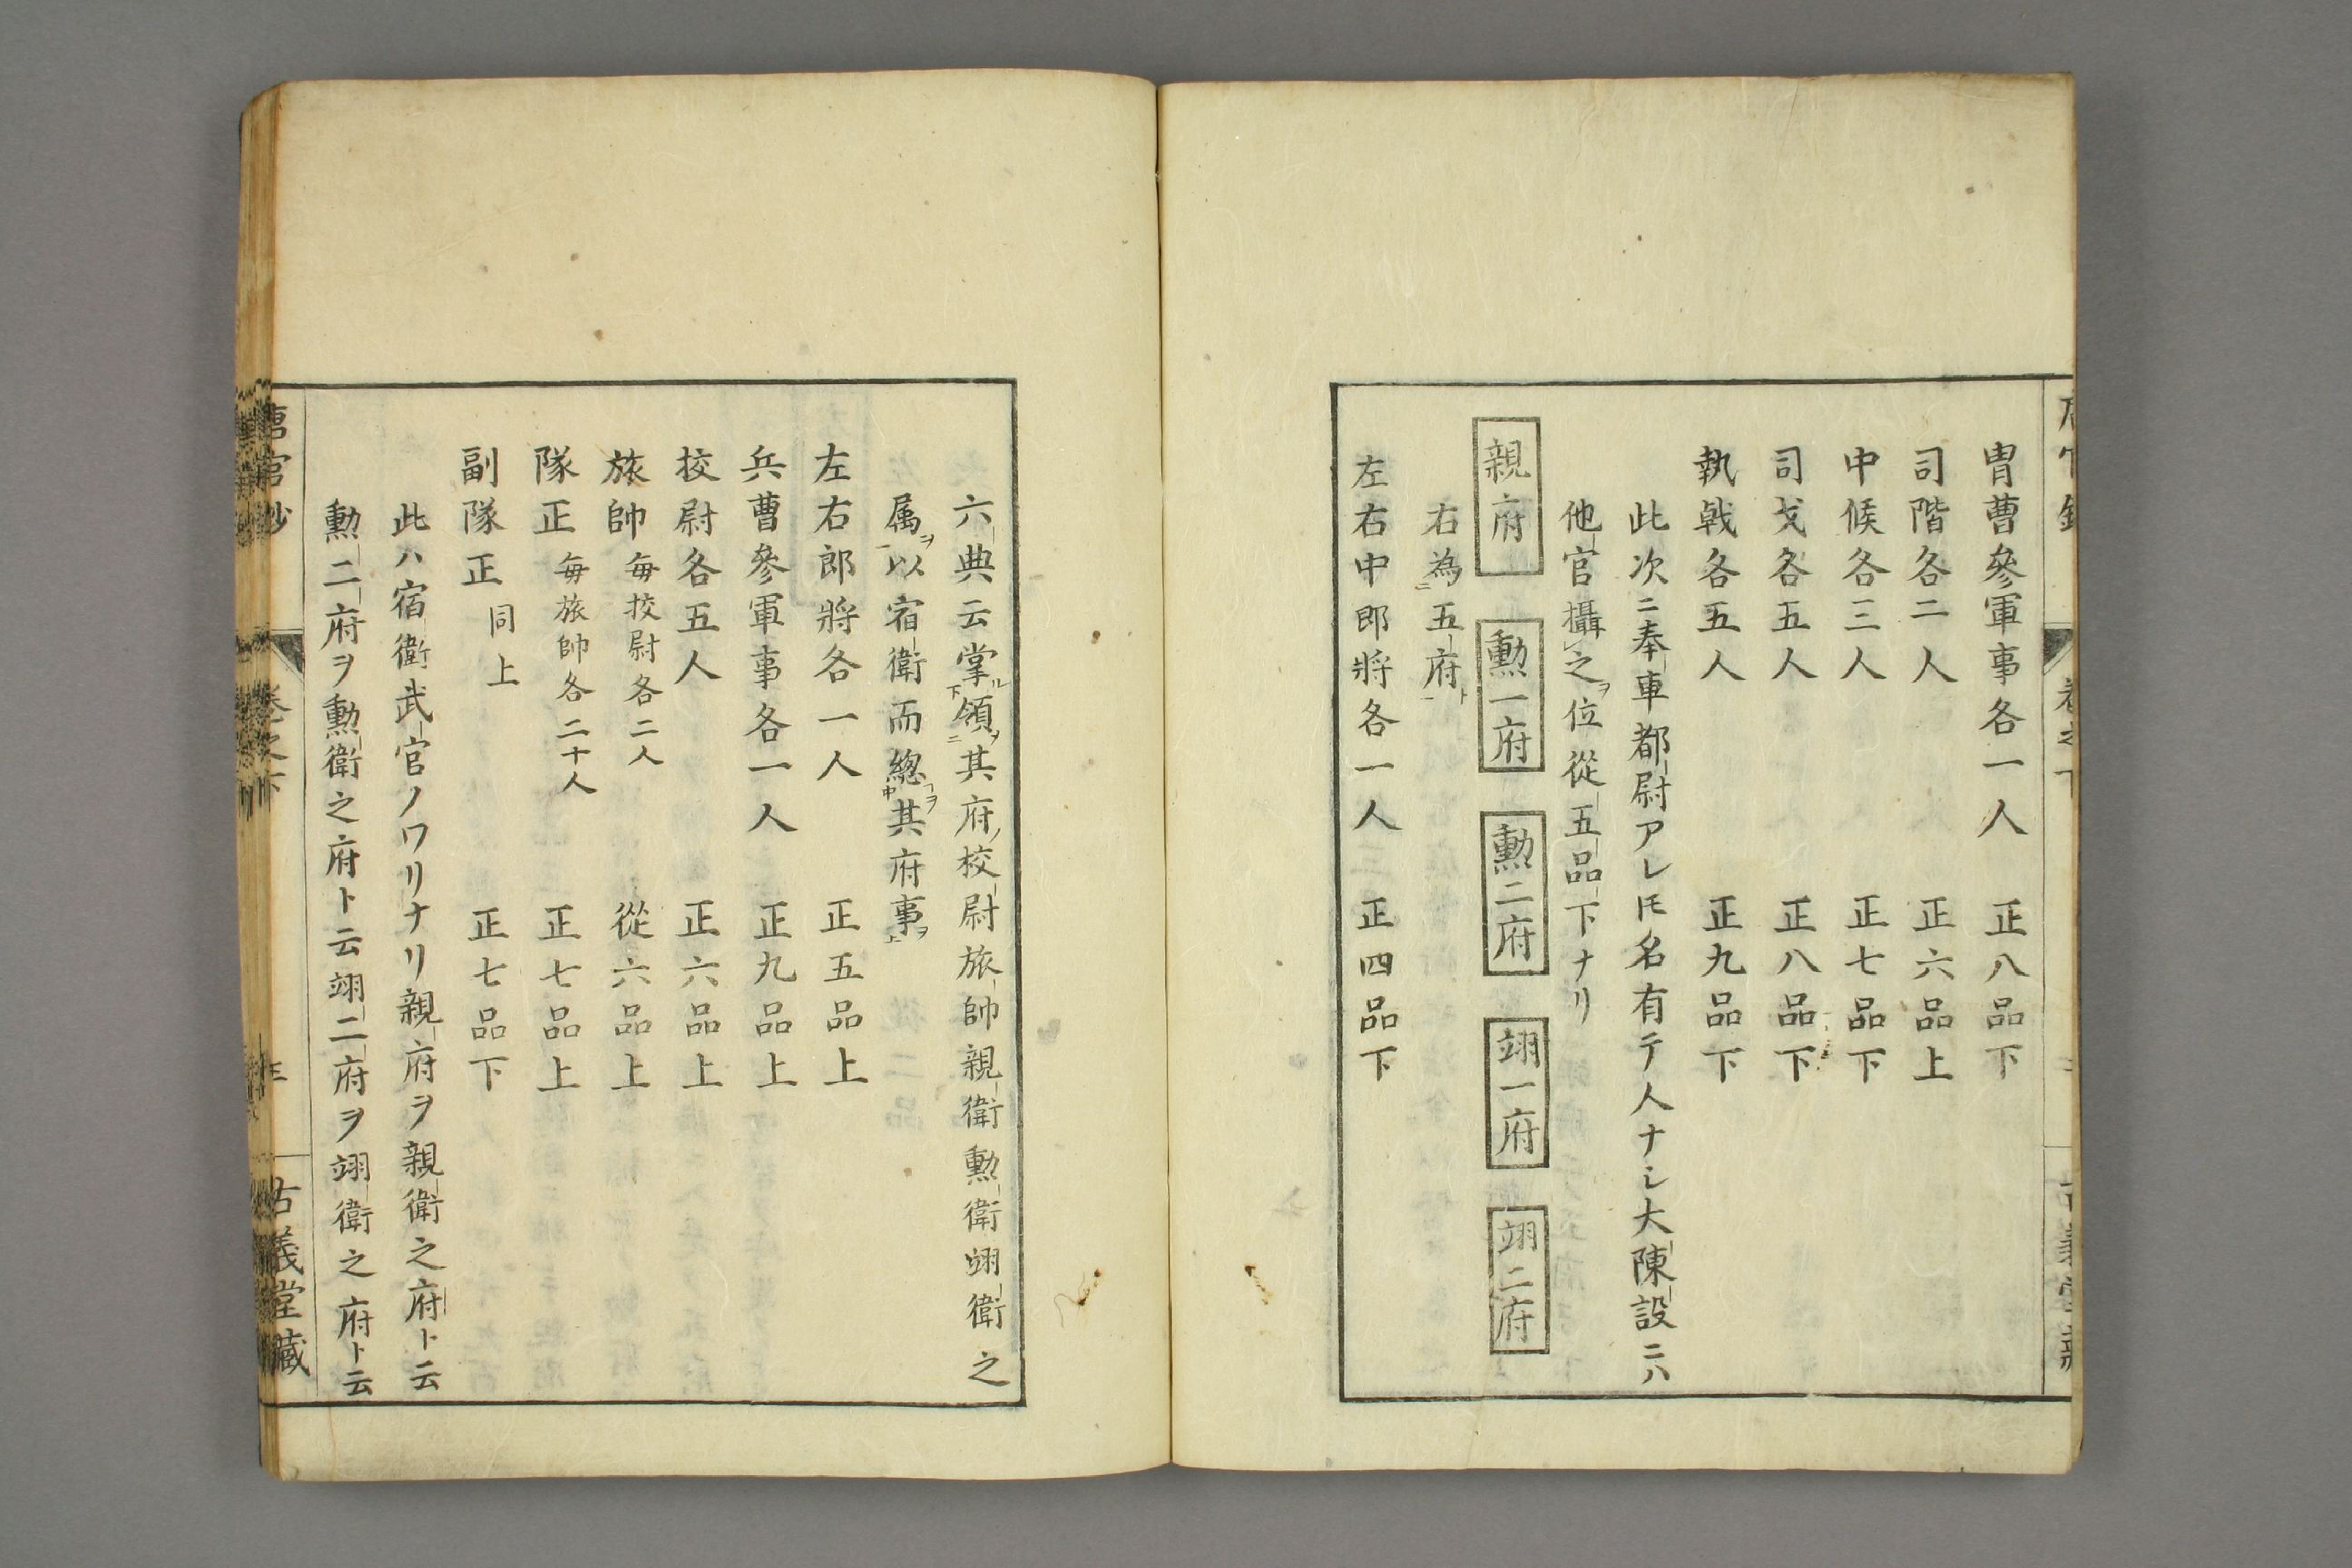 冑曹參軍事各一人　正八品下
司階各二人　正六品上
中候各三人　正七品下
司戈各五人　正八品下
執戟各五人　正九品下
此次ニ奉車都尉アレ𪜈名有テ人ナシ大陳設ニハ
他官攝之ヲ位從五品下ナリ
親府　勳一府　勳二府　翊一府　翊二府
右為二五府一ト
左右中郎將各一人　正四品下
六典云掌ル下領ヲ二其府ノ校尉旅帥親衛勳衛翊衛之
属ヲ一以宿衛而總コヲ中其府事ヲ上
左右郎將各一人　正五品上
兵曹參軍事各一人　正九品上
挍尉各五人　正六品上
旅帥每挍尉各二人　從六品上
隊正每旅帥各二十人　正七品上
副隊正同上　正七品下
此ハ宿衛武官ノワリナリ親府ヲ親衛之府ト云
勳二府ヲ勳衛之府ト云翊二府ヲ翊衛之府ト云
唐官鈔　卷之下　古義堂藏